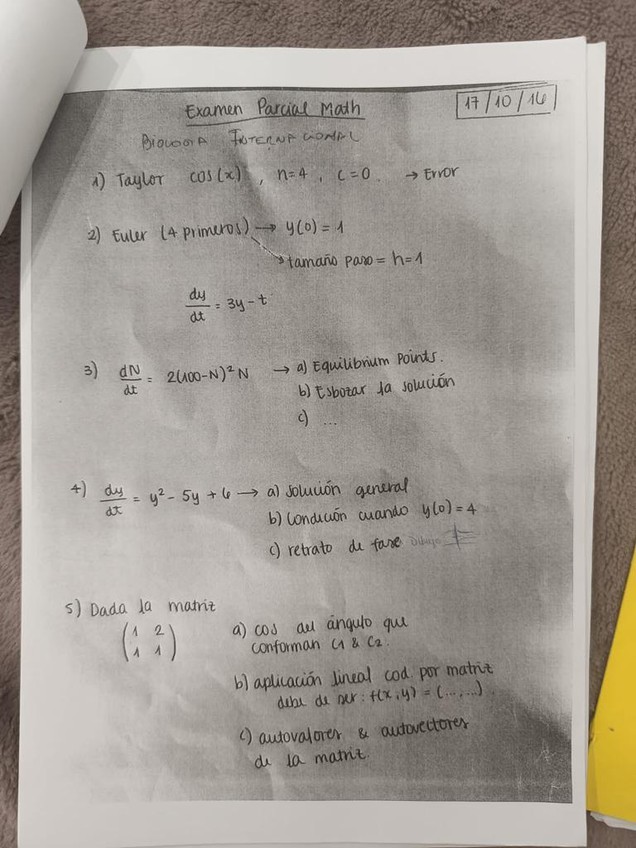 Examen Parcial Math
17/10/16
BIOLOGIA INTERNACIONAL
1) Taylor cos(x) , n=4 , c=0. → Error
2) Euler (4 primeros) → y(0) = 1
→ tamaño paso = h=1
dy/dt = 3y - t
3) dN/dt = 2(100-N)² N → a) Equilibrium Points.
b) Esbozar la solución
c) ...
4) dy/dt = y² - 5y + 6 → a) solución general
b) condición cuando y(0) = 4
c) retrato de fase Dibujo
5) Dada la matriz
(1 2
1 1)
a) cos del ángulo que
conforman C1 & C2.
b) aplicación lineal cod. por matriz
debe de ser: f(x,y) = (...,...).
c) autovalores & autovectores
de la matriz.